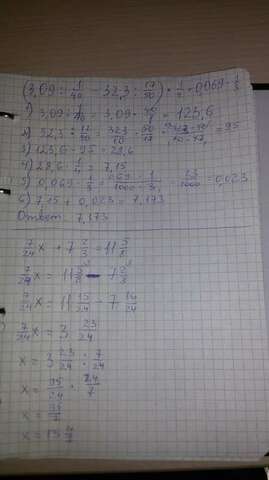 (3,09 : 1/40 - 32,3 : 17/50) · 1/4 + 0,069 · 1/3
1) 3,09 : 1/40 = 3,09 · 40/1 = 123,6
2) 32,3 : 17/50 = 323/10 · 50/17 = 323·50/10·17 = 95
3) 123,6 - 95 = 28,6
4) 28,6 · 1/4 = 7,15
5) 0,069 · 1/3 = 69·1/1000·3 = 23/1000 = 0,023
6) 7,15 + 0,023 = 7,173
Ответ 7,173
7/24 x + 7 2/3 = 11 5/8
7/24 x = 11 5/8 - 7 2/3
7/24 x = 11 15/24 - 7 16/24
7/24 x = 3 23/24
x = 3 23/24 : 7/24
x = 95/24 · 24/7
x = 95/7
x = 13 4/7